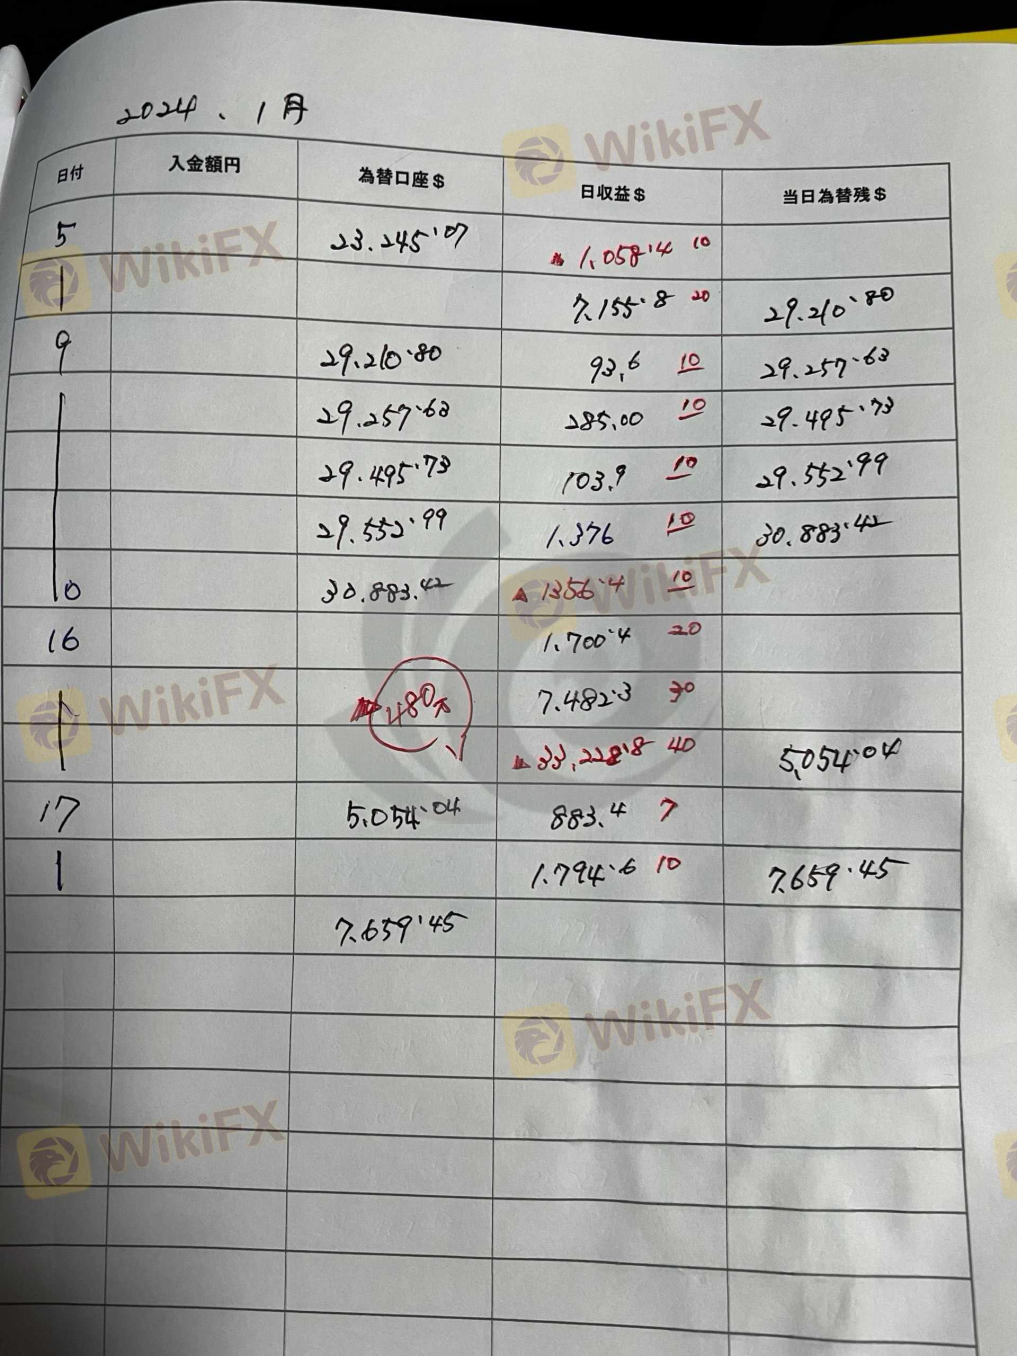 2024、1月
日付 入金額円 為替口座$ 日収益$ 当日為替残$
5 23.245.07 ▲1,058.4 10
7.155.8 20 29.210.80
9 29.210.80 93,6 10 29.257.63
29.257.63 285,00 10 29.495.73
29.495.73 103.9 10 29.552.99
29.552.99 1.376 10 30.883.42
10 30.883.42 ▲1356.4 10
16 1.700.4 20
480万 7.482.3 30
▲33,228.8 40 5,054.04
17 5.054.04 883.4 7
1.794.6 10 7.659.45
7.659.45
WikiFX
WikiFX
WikiFX
WikiFX
WikiFX
WikiFX